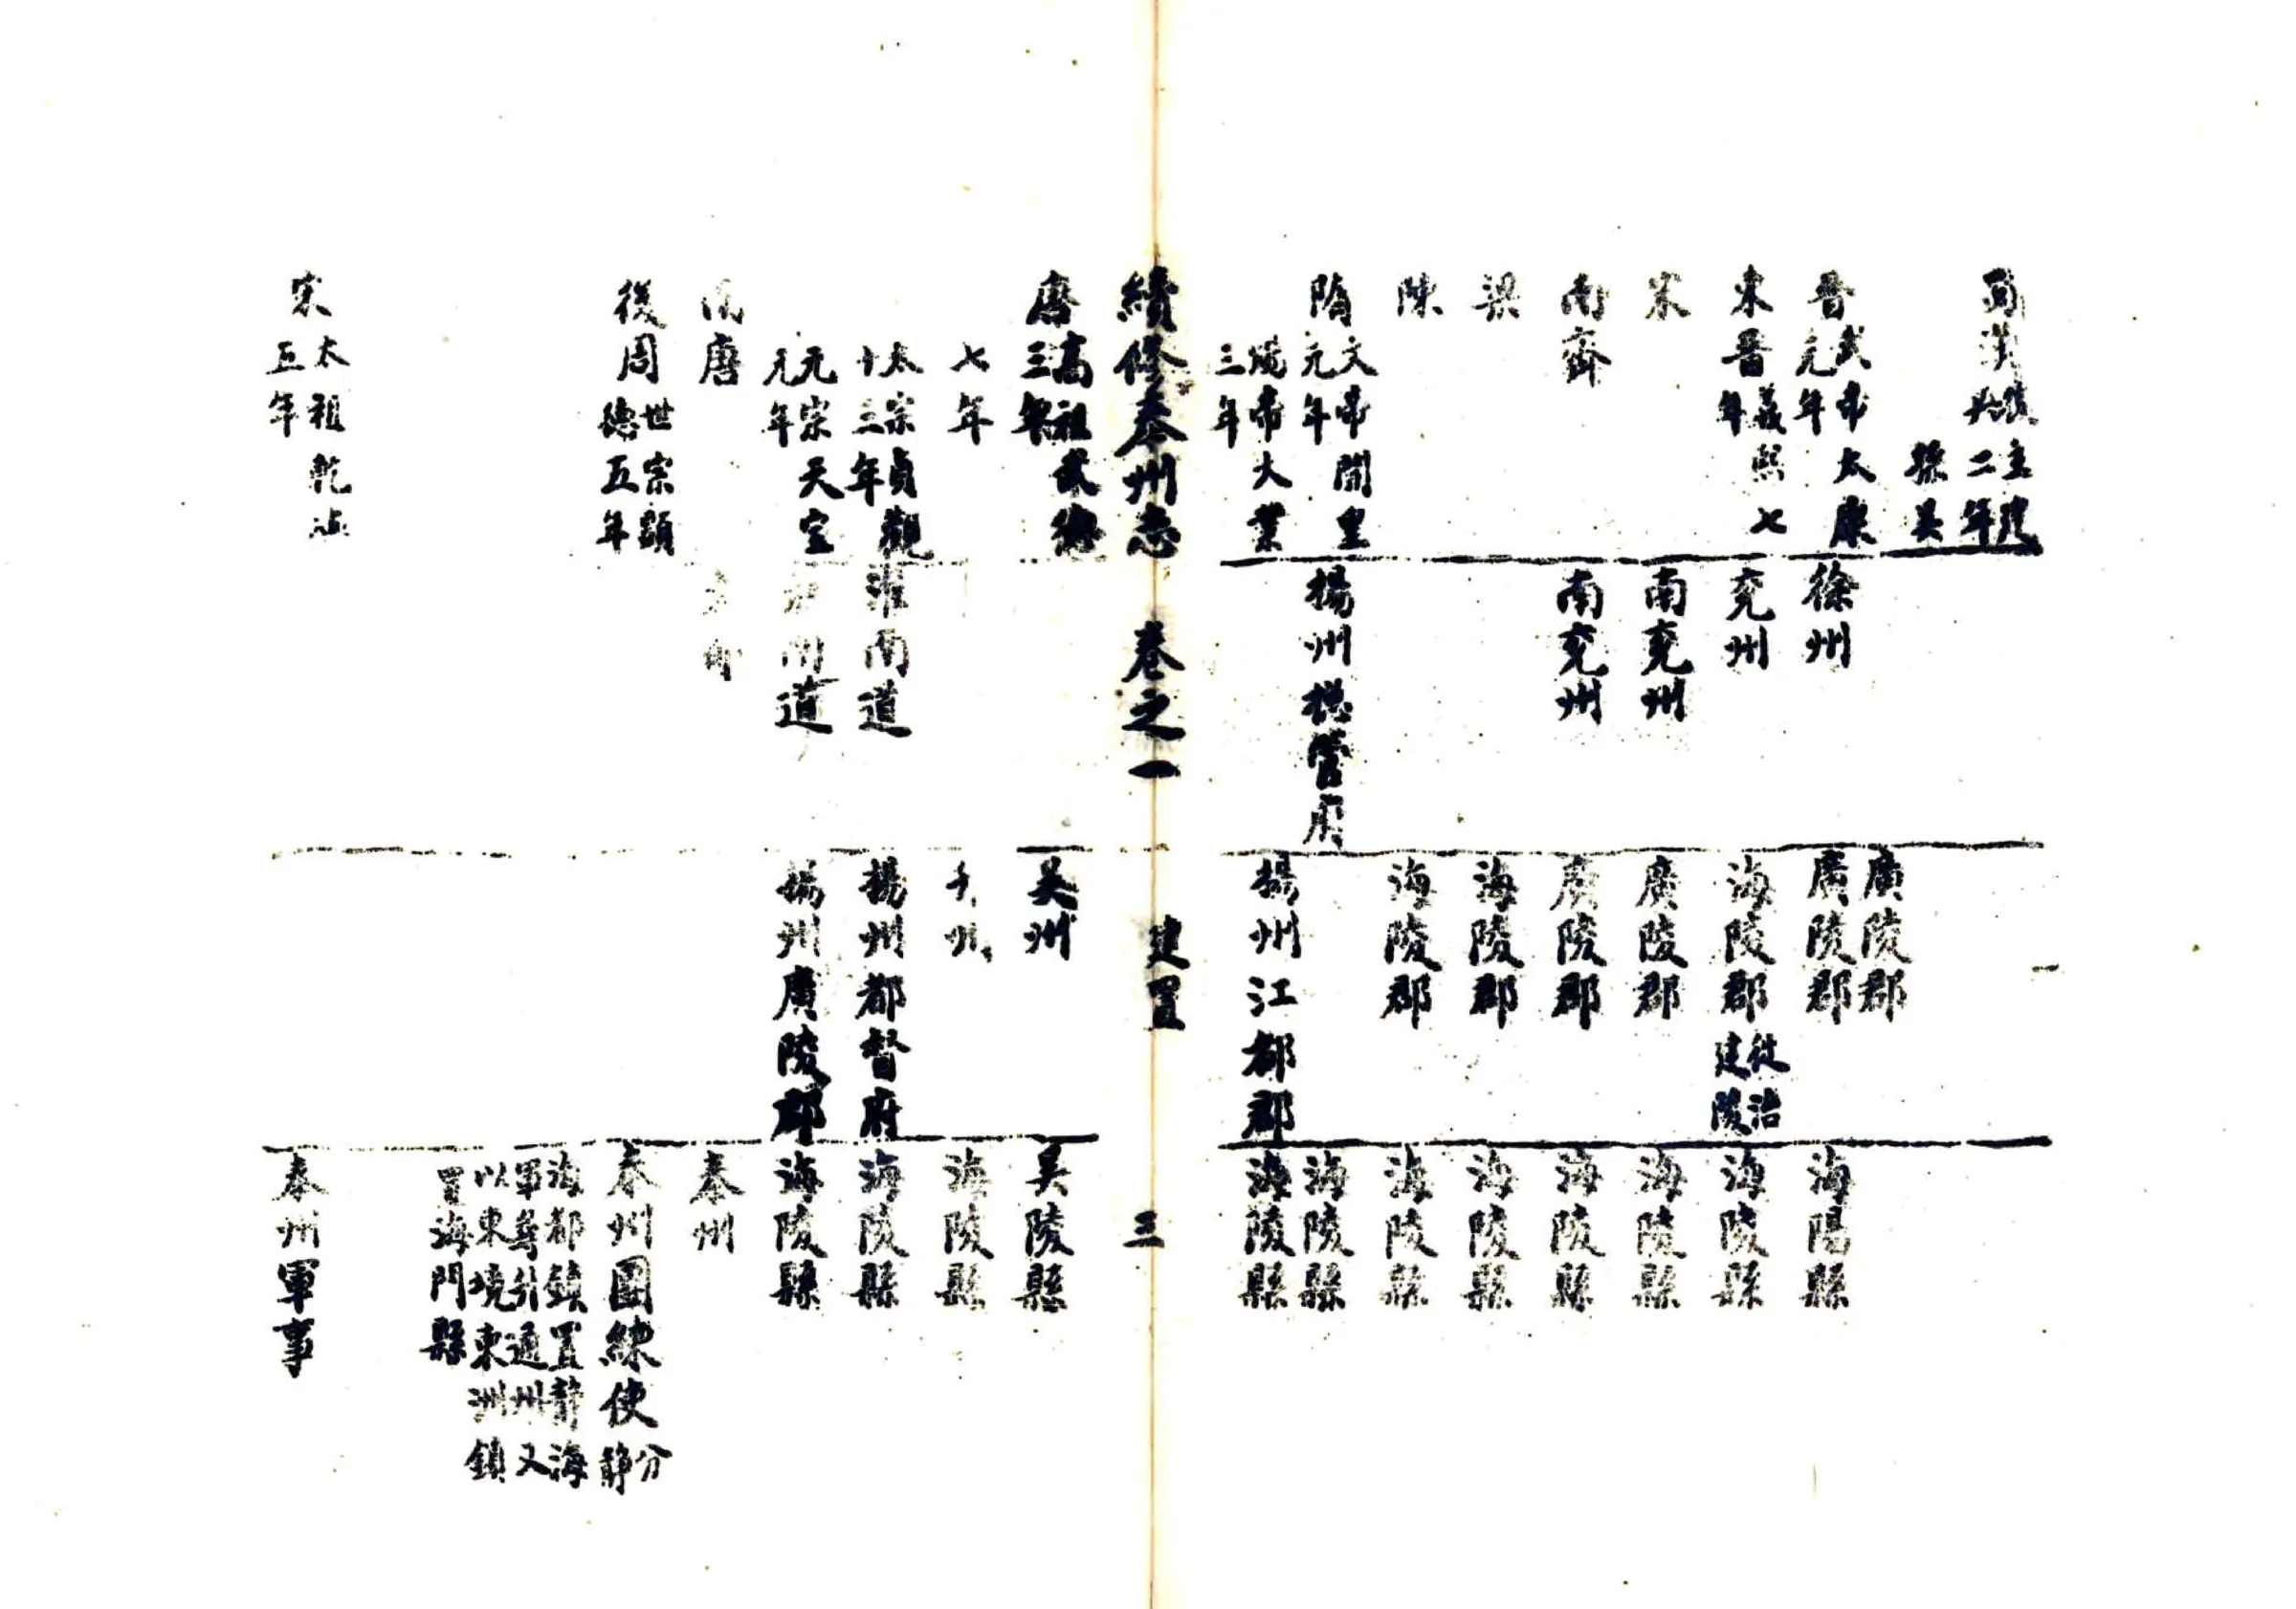 蜀漢後主建
興二年
孫吳
廣陵郡
晉武帝太康
元年
徐州
廣陵郡
海陽縣
東晉義熙七
年
兗州
海陵郡徙治
建陵
海陵縣
宋
南兗州
廣陵郡
海陵縣
南齊
南兗州
廣陵郡
海陵縣
梁
海陵郡
海陵縣
陳
海陵郡
海陵縣
隋文帝開皇
元年
揚州總管府
海陵縣
煬帝大業
三年
揚州江都郡
海陵縣
續修泰州志 卷之一 建置 三
唐高祖武德
三年
吳州
吳陵縣
七年
州
海陵縣
太宗貞觀
十三年
淮南道
揚州都督府
海陵縣
元宗天寶
元年
南道
揚州廣陵郡
海陵縣
南唐
泰州
後周世宗顯
德五年
泰州團練使分
靜
海都鎮置靜海
軍尋升通州又
以東境東洲鎮
置海門縣
宋太祖乾德
五年
泰州軍事